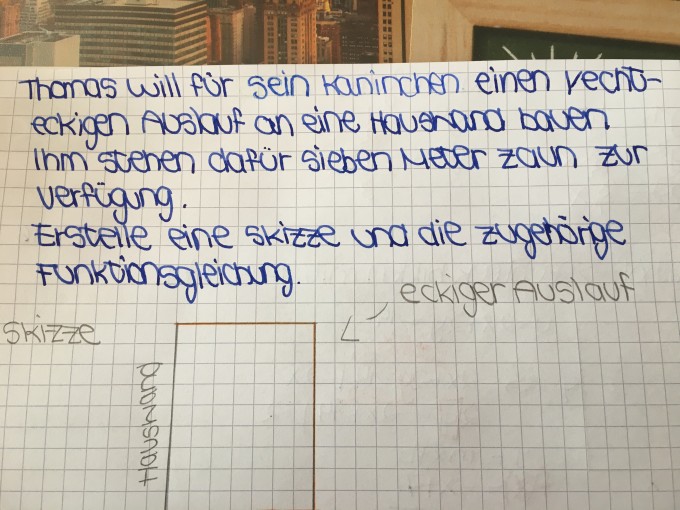 Thomas will für sein Kaninchen einen recht-
eckigen Auslauf an eine Hauswand bauen
Ihm stehen dafür sieben Meter Zaun zur
Verfügung.
Erstelle eine Skizze und die zugehörige
Funktionsgleichung.
eckiger Auslauf
Skizze
Hauswand